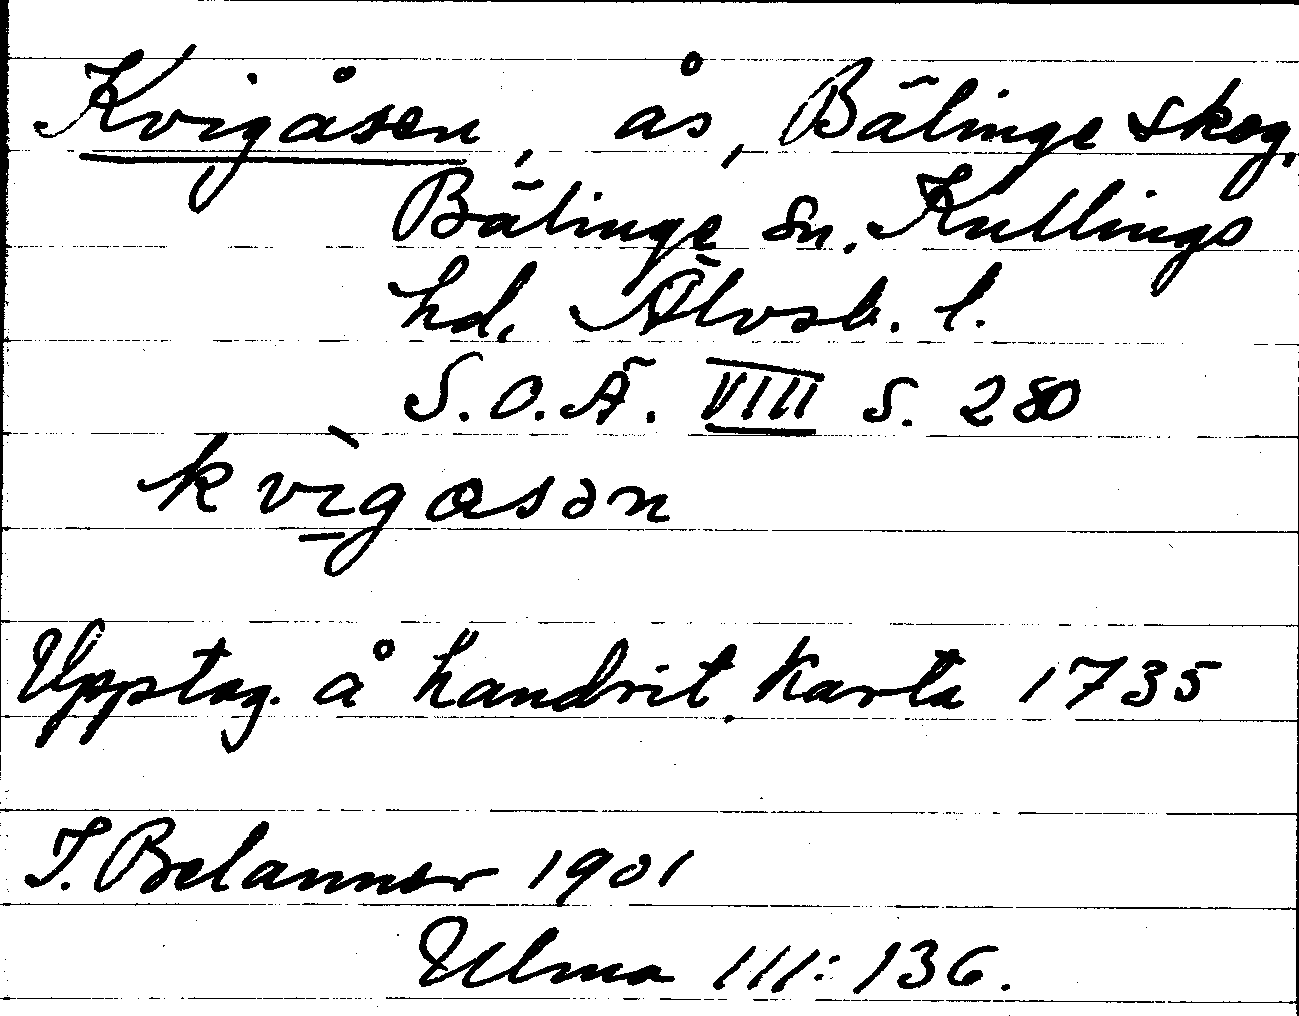 Kvigåsen, ås, Bälinge skog,
Bälinge sn. Kullings
hd, Älvsb. l.
S.O.Ä. VIII s. 280
kvìgasən
Upptag. å handrit. karta 1735
T. Belanner 1901
Ulma 111:136.